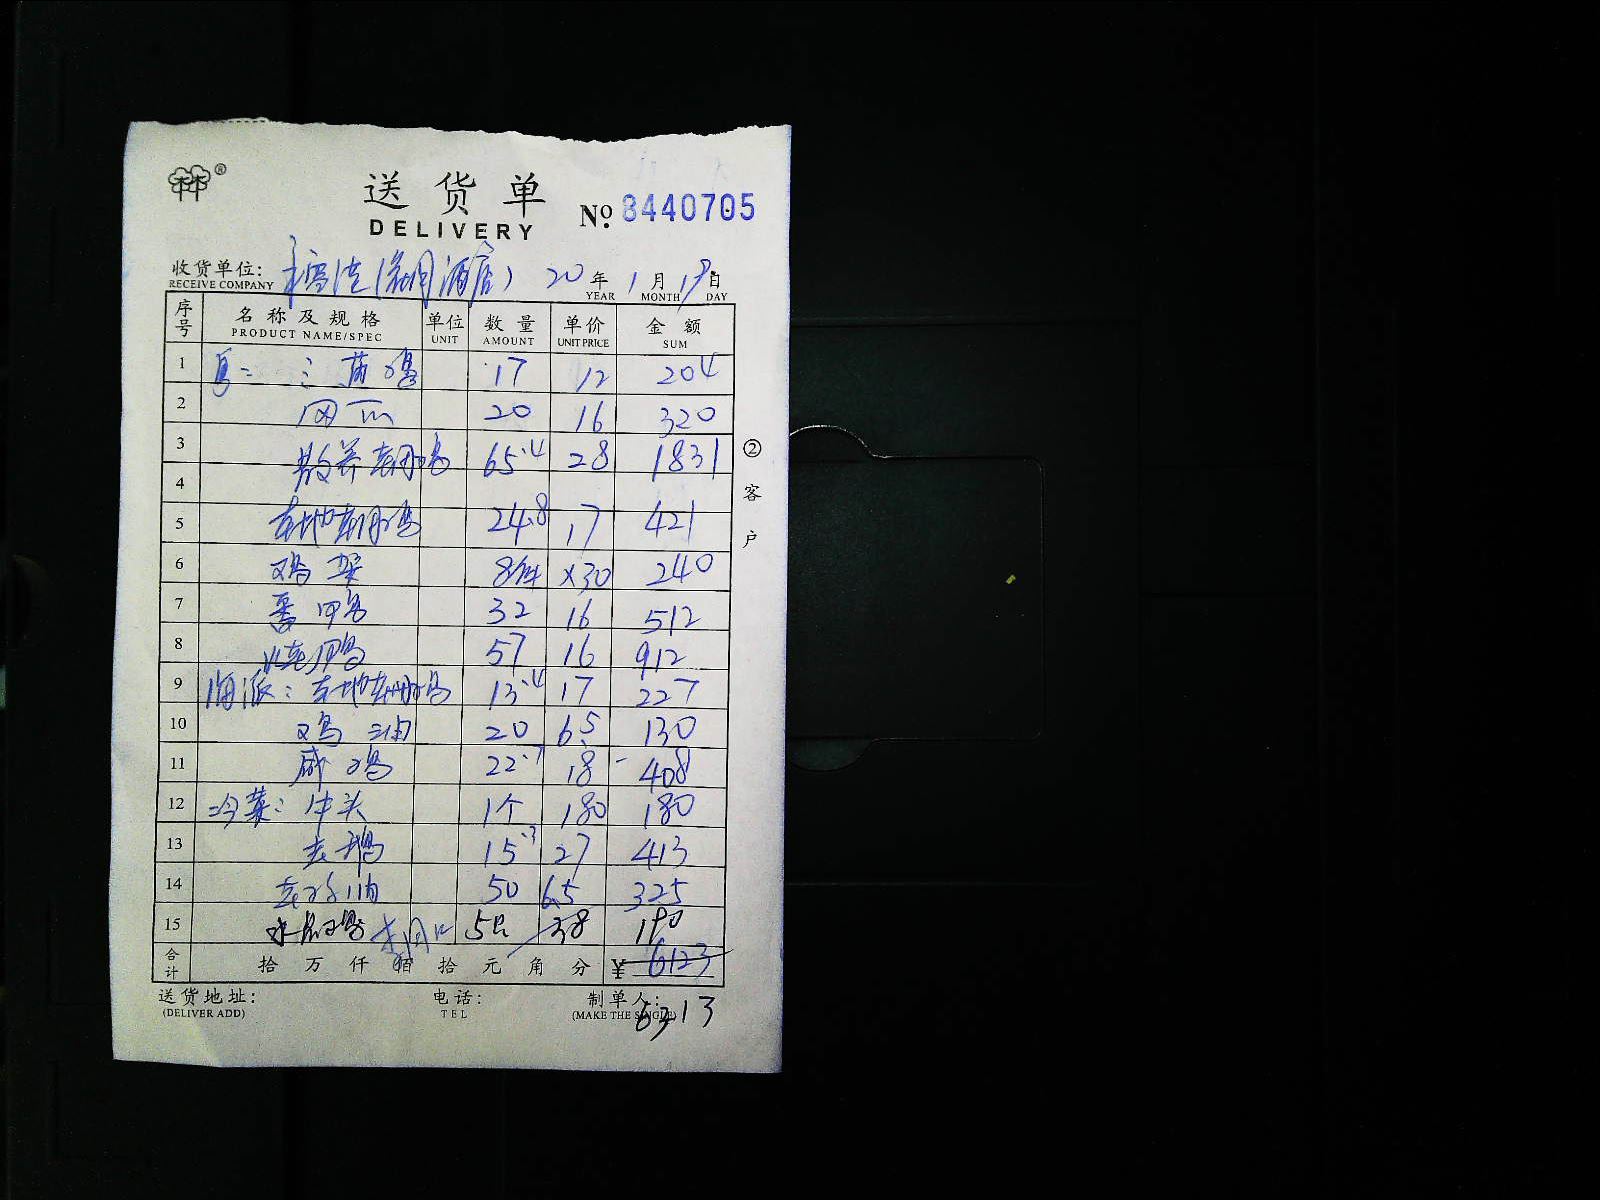 送货单
DELIVERY
№ 8440705
收货单位: 20年1月19日
RECEIVE COMPANY YEAR MONTH DAY
序号 名称及规格 单位 数量 单价 金额
PRODUCT NAME/SPEC UNIT AMOUNT UNIT PRICE SUM
1 三黄鸡 17 12 204
2 20 16 320
3 散养老母鸡 65.4 28 1831
4
5 本地老母鸡 24.8 17 421
6 鸡架 8件 ×30 240
7 番鸭 32 16 512
8 57 16 912
9 海派: 本地老母鸡 13.4 17 227
10 鸡油 20 6.5 130
11 咸鸡 22.7 18 408
12 冷菜: 牛头 1个 180 180
13 老鹅 15.3 27 413
14 50 6.5 325
15 5只 38 190
合计 拾万仟佰拾元角分 ¥ 6123
送货地址: 电话: 制单人:
(DELIVER ADD) TEL (MAKE THE SINGLE)
6313
②客户